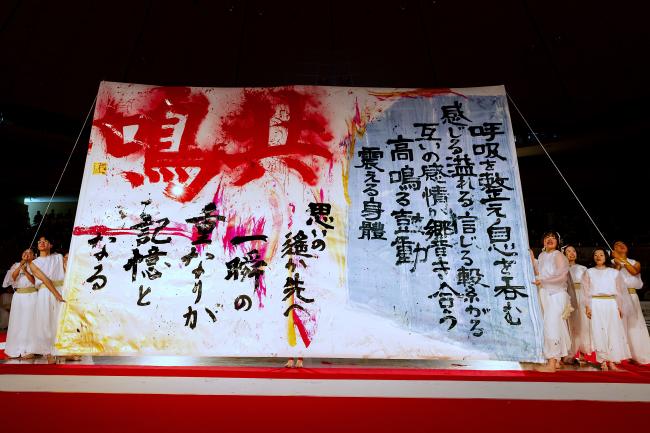 呼吸を整え息を呑む
感じる溢れる信じる繋がる
互いの感情が響き合う
高鳴る鼓動
震える身體
共鳴
思いの
遥か先へ
一瞬の
重なりが
記憶と
なる